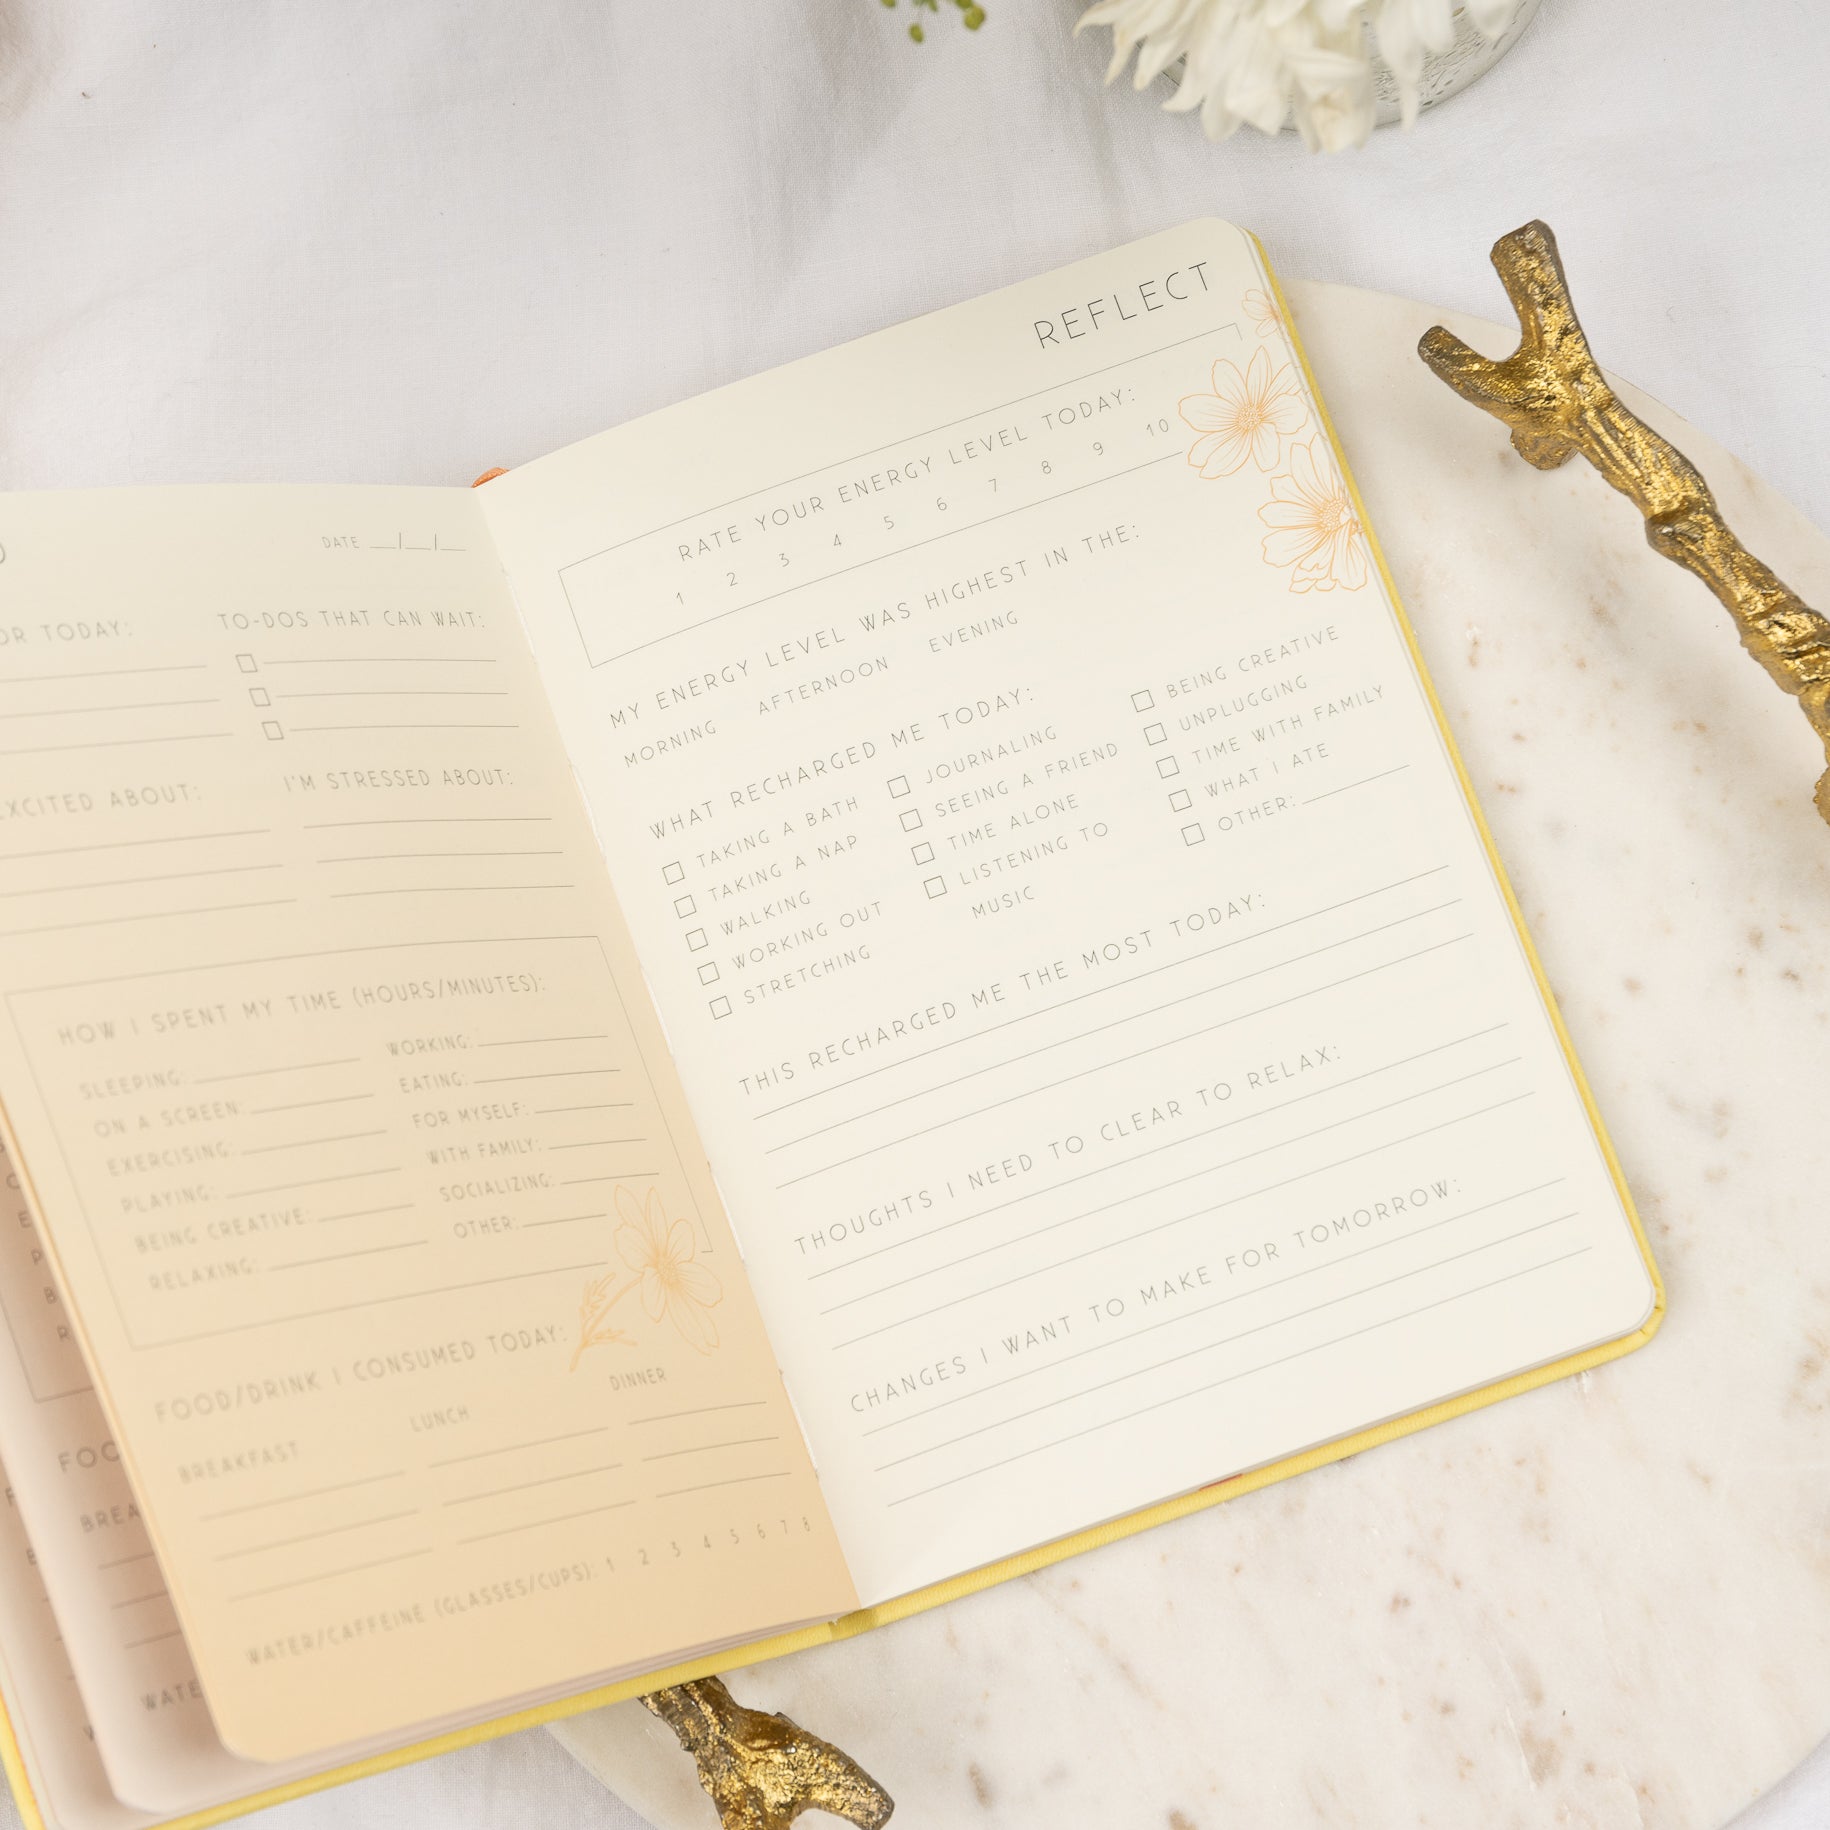 DATE __/__/__
OR TODAY:
TO-DOS THAT CAN WAIT:
EXCITED ABOUT:
I'M STRESSED ABOUT:
HOW I SPENT MY TIME (HOURS/MINUTES):
SLEEPING:
ON A SCREEN:
EXERCISING:
PLAYING:
BEING CREATIVE:
RELAXING:
WORKING:
EATING:
FOR MYSELF:
WITH FAMILY:
SOCIALIZING:
OTHER:
FOOD/DRINK I CONSUMED TODAY:
BREAKFAST
LUNCH
DINNER
WATER/CAFFEINE (GLASSES/CUPS): 1 2 3 4 5 6 7 8
REFLECT
RATE YOUR ENERGY LEVEL TODAY:
1 2 3 4 5 6 7 8 9 10
MY ENERGY LEVEL WAS HIGHEST IN THE:
MORNING AFTERNOON EVENING
WHAT RECHARGED ME TODAY:
TAKING A BATH
TAKING A NAP
WALKING
WORKING OUT
STRETCHING
JOURNALING
SEEING A FRIEND
TIME ALONE
LISTENING TO
MUSIC
BEING CREATIVE
UNPLUGGING
TIME WITH FAMILY
WHAT I ATE
OTHER:
THIS RECHARGED ME THE MOST TODAY:
THOUGHTS I NEED TO CLEAR TO RELAX:
CHANGES I WANT TO MAKE FOR TOMORROW: